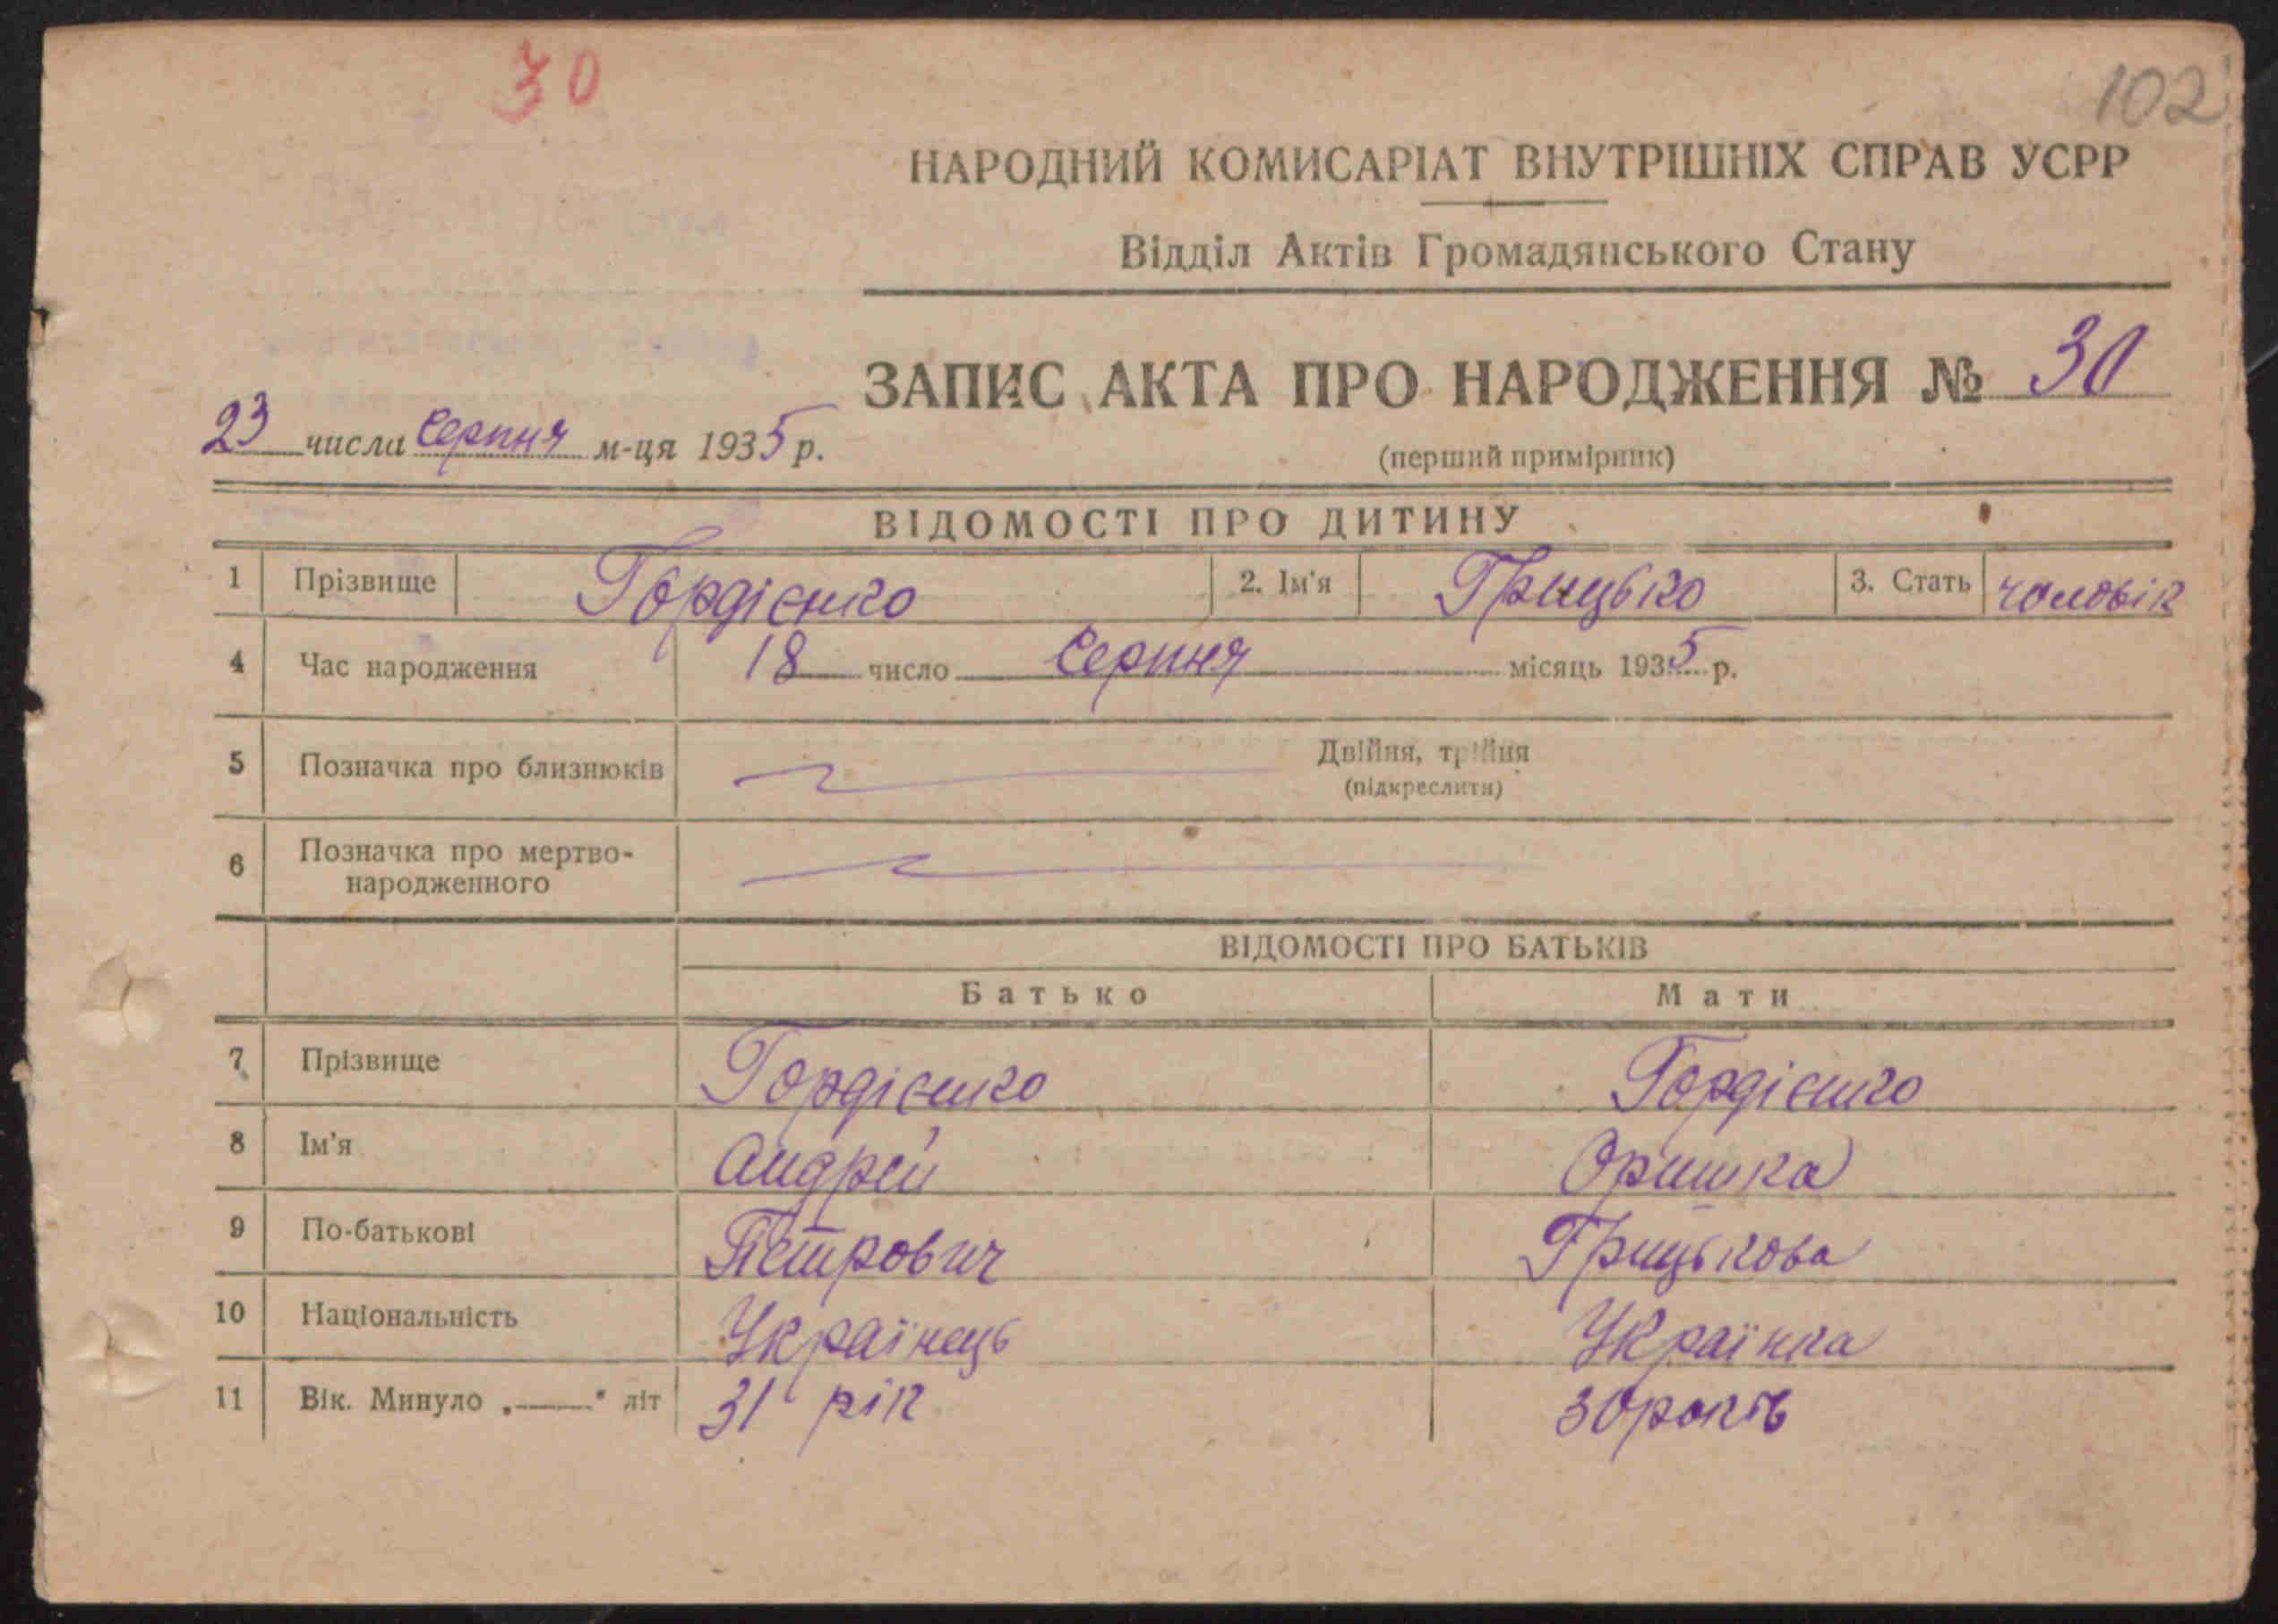 30
102
НАРОДНИЙ КОМИСАРІАТ ВНУТРІШНІХ СПРАВ УСРР
Відділ Актів Громадянського Стану
ЗАПИС АКТА ПРО НАРОДЖЕННЯ № 30
23 числа Серпня м-ця 1935 р.
(перший примірник)
ВІДОМОСТІ ПРО ДИТИНУ
1 Прізвище Гордієнко 2. Ім'я Грицько 3. Стать чоловік
4 Час народження 18 число Серпня місяць 1935 р.
5 Позначка про близнюків Двійня, трійня
(підкреслити)
6 Позначка про мертво-
народженного
ВІДОМОСТІ ПРО БАТЬКІВ
Батько Мати
7 Прізвище Гордієнко Гордієнко
8 Ім'я Андрей Оришка
9 По-батькові Петрович Грицькова
10 Національність Українець Українка
11 Вік. Минуло „——" літ 31 рік 30 років